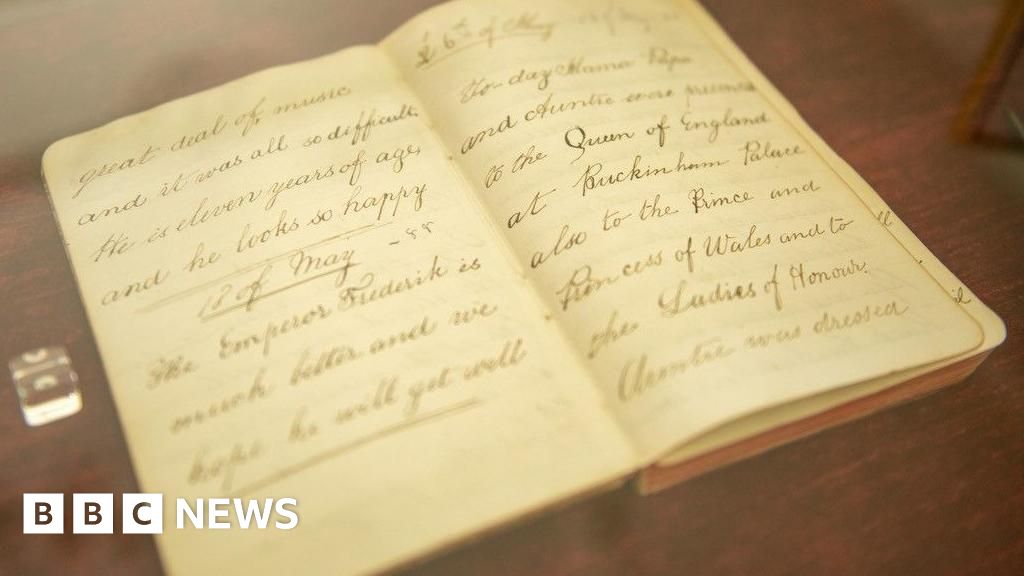 great deal of music
and it was all so difficult.
He is eleven years of age,
and he looks so happy
18 of May -88
The Emperor Frederik is
much better and we
hope he will get well
6th of May
To-day Mama Papa
and Auntie were presented
to the Queen of England
at Buckinham Palace
also to the Prince and
Princess of Wales and to
the Ladies of Honour.
Auntie was dressed
BBC NEWS